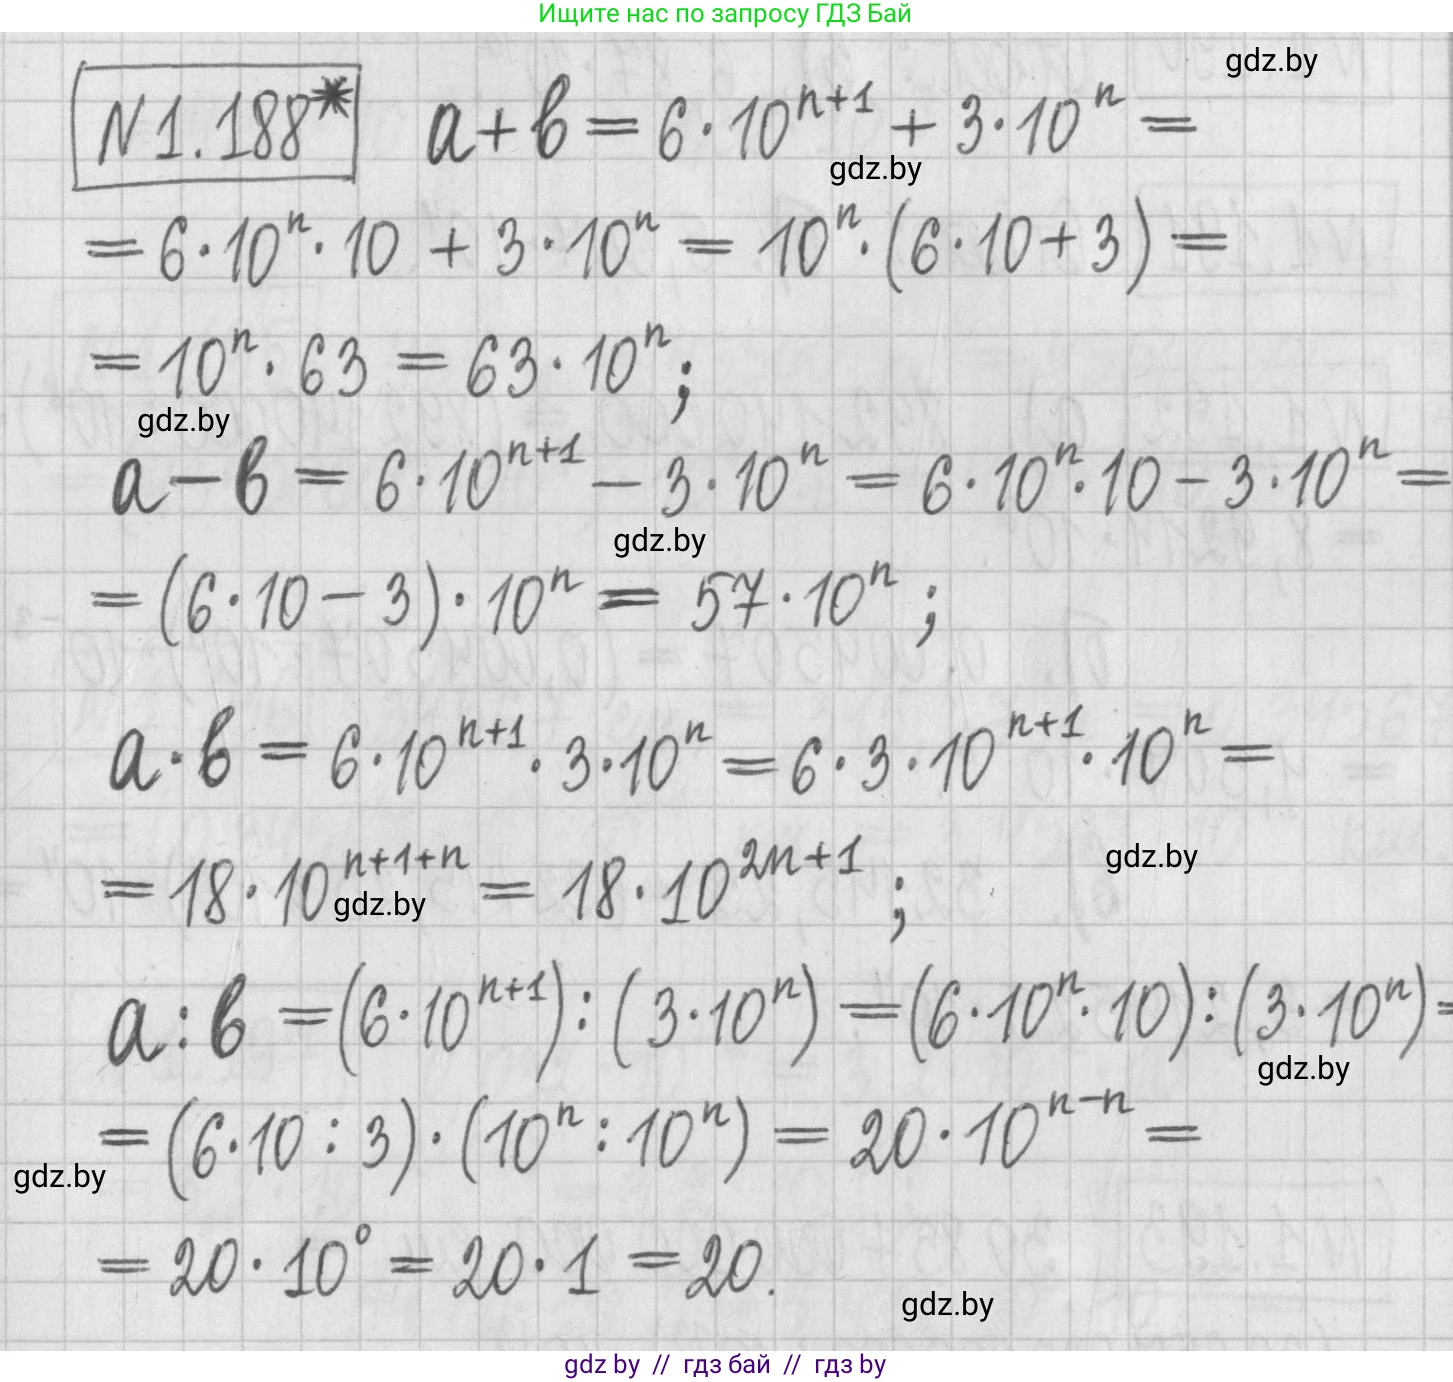 Ищите нас по запросу ГДЗ Бай
gdz.by
N1.188* a+b = 6·10^{n+1} + 3·10^n =
gdz.by
= 6·10^n·10 + 3·10^n = 10^n·(6·10+3) =
= 10^n·63 = 63·10^n;
gdz.by
a−b = 6·10^{n+1} − 3·10^n = 6·10^n·10 − 3·10^n =
gdz.by
= (6·10−3)·10^n = 57·10^n;
a·b = 6·10^{n+1}·3·10^n = 6·3·10^{n+1}·10^n =
gdz.by
= 18·10^{n+1+n} = 18·10^{2n+1};
gdz.by
a:b = (6·10^{n+1}):(3·10^n) = (6·10^n·10):(3·10^n) =
gdz.by
= (6·10:3)·(10^n:10^n) = 20·10^{n−n} =
gdz.by
= 20·10^0 = 20·1 = 20.
gdz.by
gdz by // гдз бай // гдз by